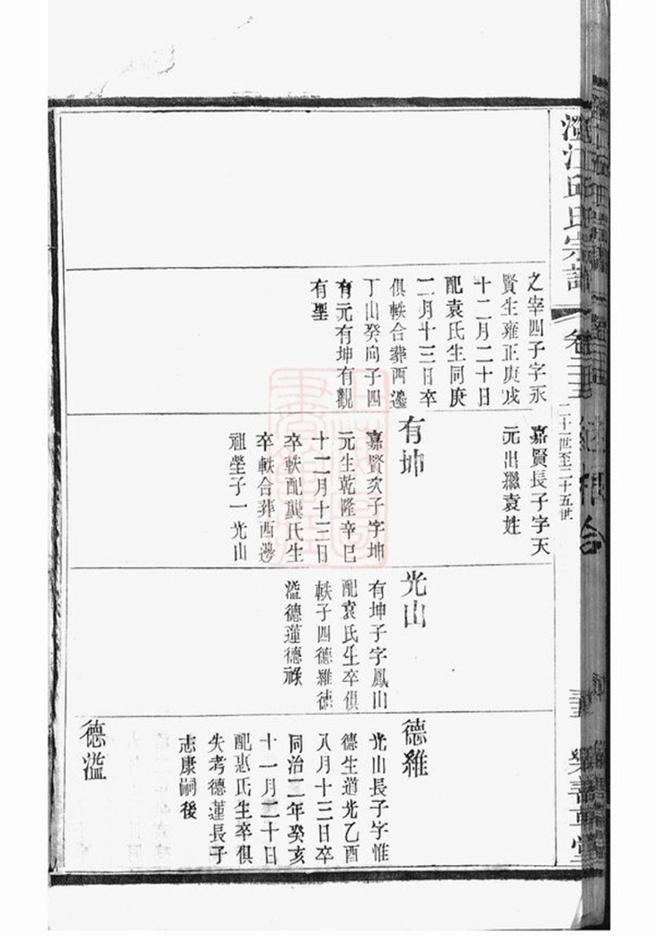 澄江邱氏宗譜
卷三十三
二十一世至二十五世
之宰四子字永
賢生雍正庚戌
十二月二十日
配袁氏生同庚
二月十三日卒
俱軼合葬西邊
丁山癸向子四
有元有坤有觀
有聖
嘉賢長子字天
元出獵袁姓
有坤
嘉賢次子字坤
元生乾隆辛巳
十一月十三日
卒軼配龔氏生
卒軼合葬西邊
祖塋子一光山
光山
有坤子字鳳山
配袁氏生卒俱
軼子四德維德
溢德蓮德祿
德維
光山長子字惟
德生道光乙酉
八月十三日卒
同治二年癸亥
十一月二十日
配惠氏生卒俱
失考德蓮長子
志康嗣後
德溢